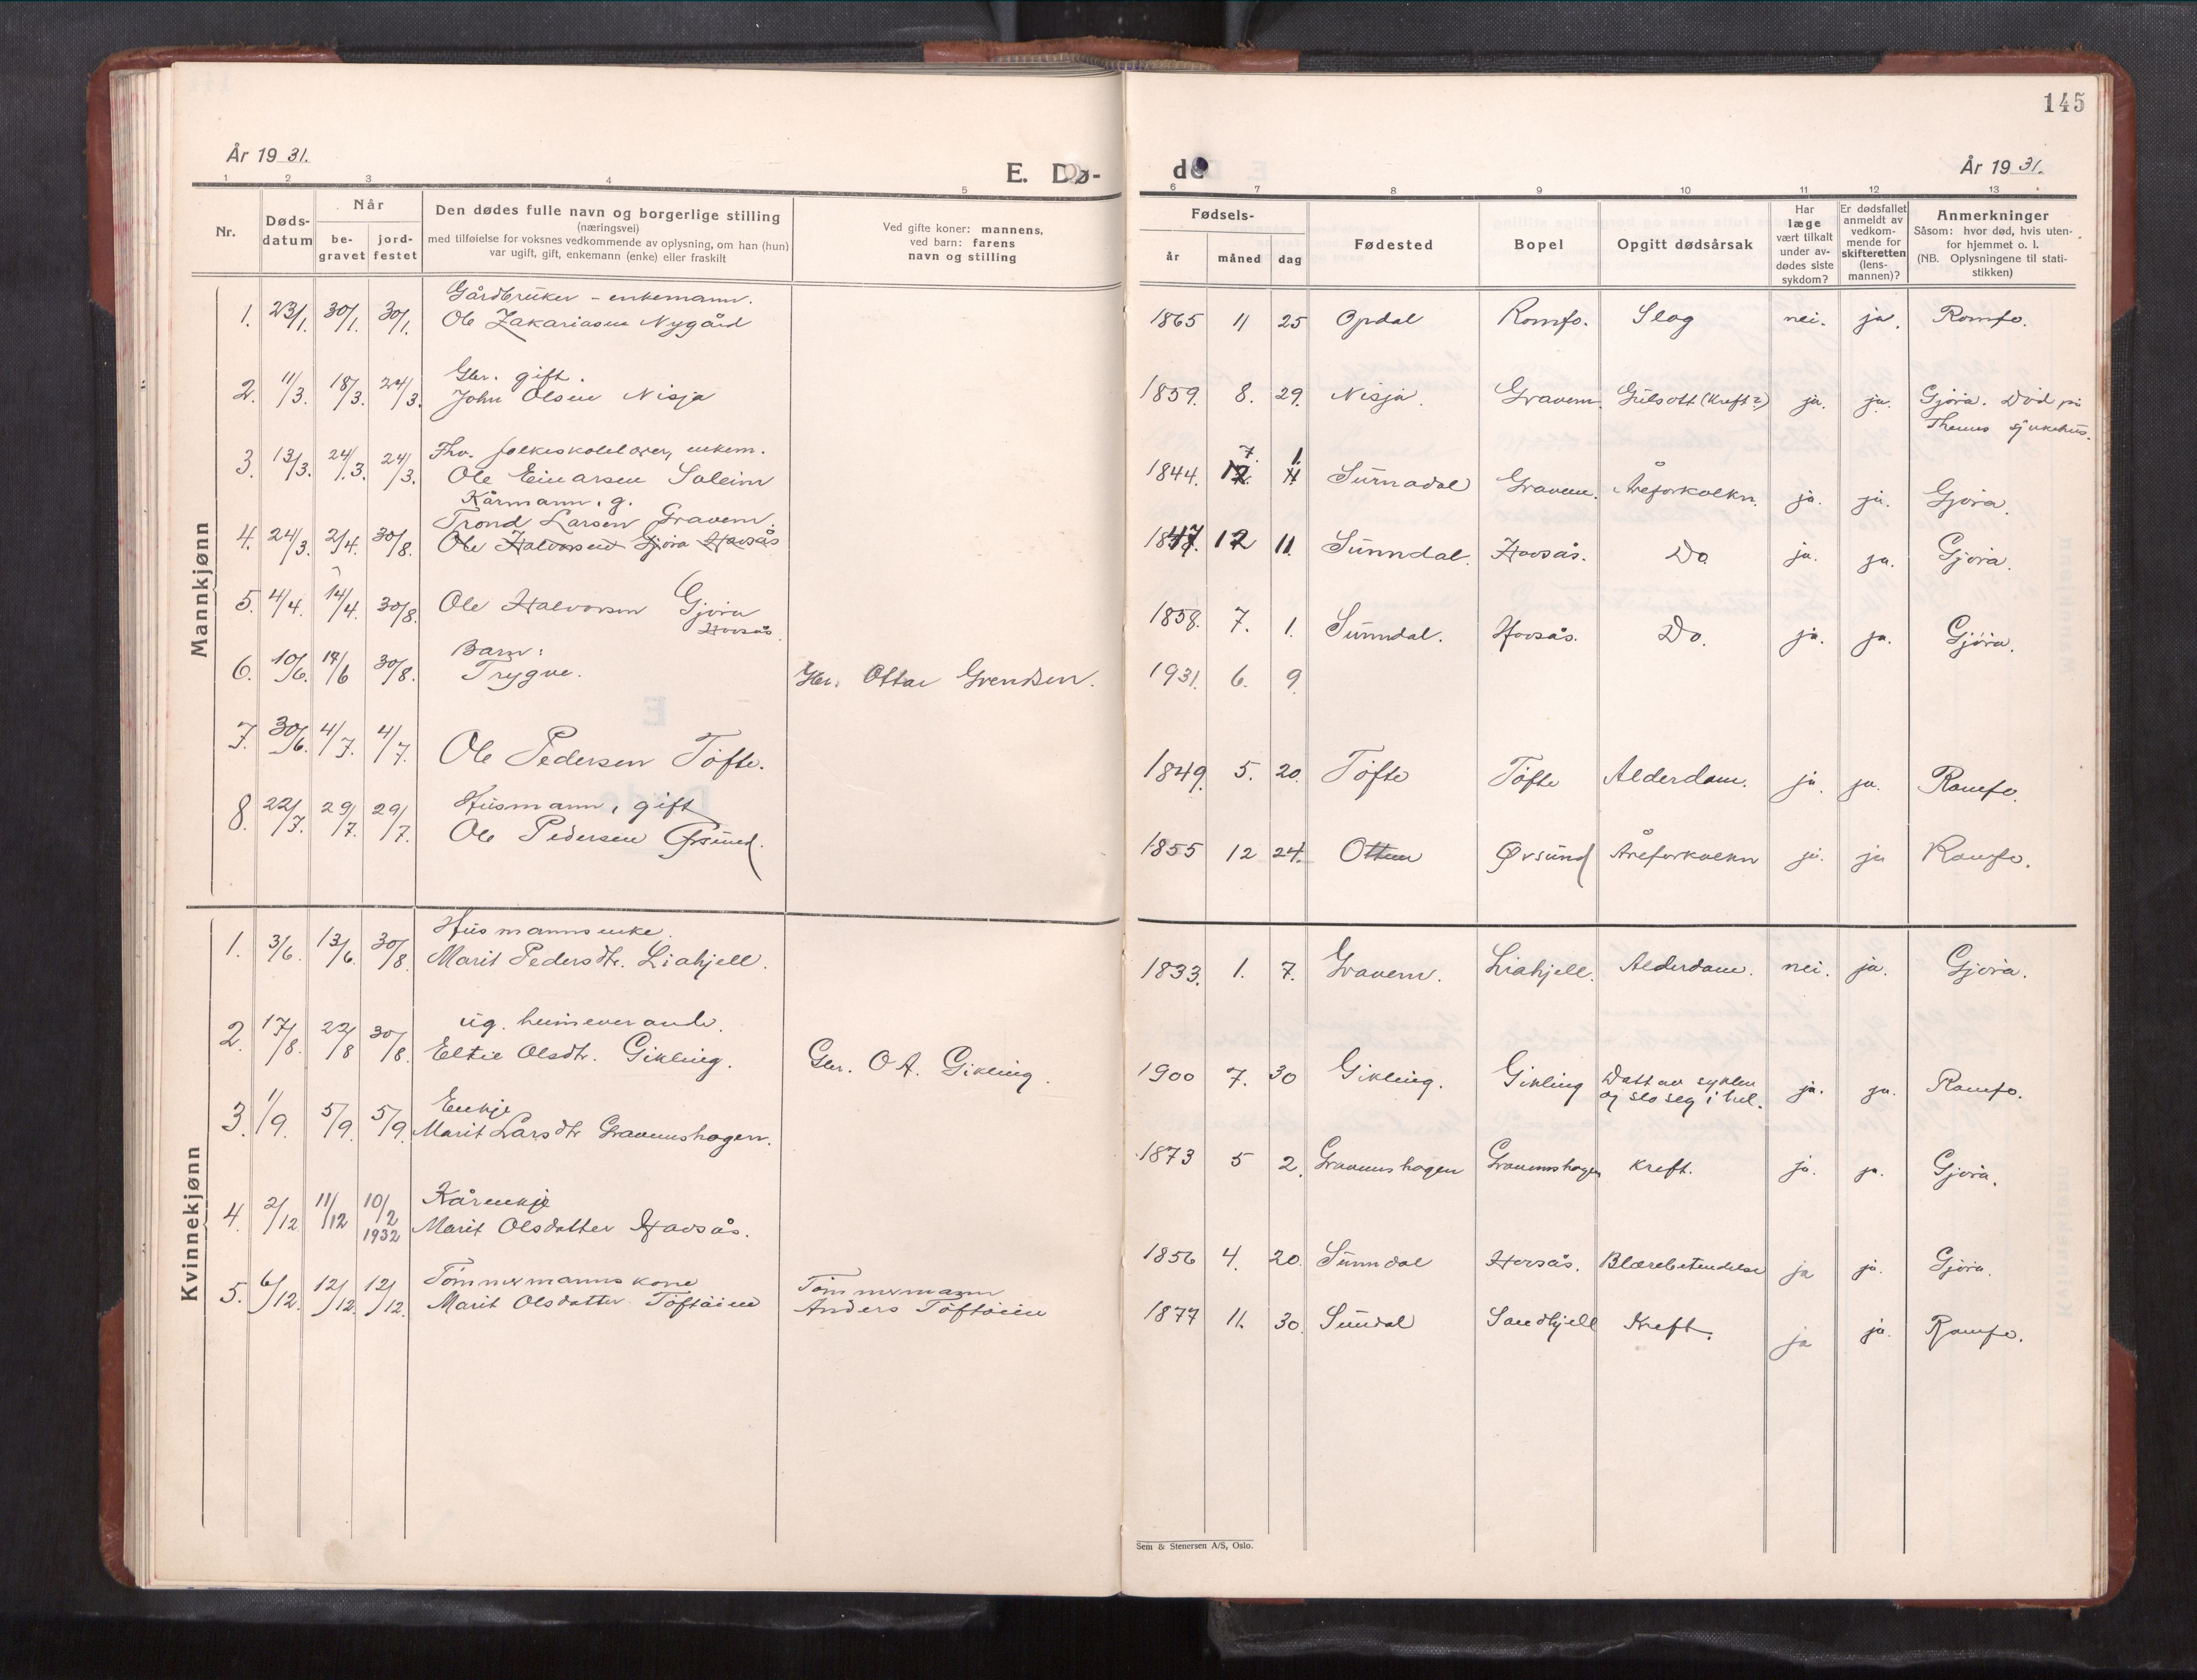 145
År 19 31.
E. Dø-
de
År 19 31.
1 2 3 4 5
6 7 8 9 10 11 12 13
Nr.
Døds-
datum
Når
be-
gravet
jord-
festet
Den dødes fulle navn og borgerlige stilling
(næringsvei)
med tilføielse for voksnes vedkommende av oplysning, om han (hun)
var ugift, gift, enkemann (enke) eller fraskilt
Ved gifte koner: mannens,
ved barn: farens
navn og stilling
Fødsels-
år måned dag
Fødested
Bopel
Opgitt dødsårsak
Har
læge
vært tilkalt
under av-
dødes siste
sykdom?
Er dødsfallet
anmeldt av
vedkom-
mende for
skifteretten
(lens-
mannen)?
Anmerkninger
Såsom: hvor død, hvis uten-
for hjemmet o. l.
(NB. Oplysningene til stati-
stikken)
Mannkjønn
Gårdbruker - enkemann.
1. 23/1. 30/1. 30/1. Ole Zakariassen Nygård 1865 11 25 Opdal Romfo. Slag nei. ja. Romfo.
Gbr. gift.
2. 11/3. 18/3. 24/3. John Olsen Nisja 1859. 8. 29. Nisja. Gravem. Gulsott (Kreft?) ja. ja. Gjøra. Død på
sjukehus.
Fhv. folkeskolelærer, enkem. 7. 1.
3. 13/3. 24/3. 24/3. Ole Einarsen Soleim 1844. 12 11 Surnadal Gravem. Åreforkalkn. ja. ja. Gjøra.
Kårmann, g.
Trond Larsen Gravem.
4. 24/3. 2/4. 30/8. Ole Halvorsen Gjøra Hovsås 1847. 12 11. Sunndal. Hovsås. Do ja. ja. Gjøra.
5. 4/4. 14/4. 30/8. Ole Halvorsen Gjøra 1858. 7. 1. Sunndal. Hovsås. Do. ja. ja. Gjøra.
Hovsås.
Barn:
6. 10/6. 17/6 30/8. Trygve. Gbr. Ottar Grendsen. 1931. 6. 9.
7. 30/6. 4/7. 4/7. Ole Pedersen Tøfte. 1849. 5. 20. Tøfte Tøfte Alderdom. ja. ja. Romfo.
Husmann, gift
8. 22/7. 29/7. 29/7. Ole Pedersen Ørsund. 1855 12 24. Ottem Ørsund Åreforkalkn ja. ja Romfo.
Kvinnekjønn
Husmannsenke.
1. 3/6. 13/6. 30/8. Marit Pedersdtr. Liahjell. 1833. 1. 7. Gravem. Liahjell. Alderdom. nei. ja. Gjøra.
ug. heimeverande.
2. 17/8. 22/8 30/8. Eltie Olsdtr. Gikling. Gbr. O A. Gikling. 1900 7. 30 Gikling. Gikling Datt av sykkel
og slo seg i hel. ja. ja. Romfo.
Enkje
3. 1/9. 5/9. 5/9. Marit Larsdtr Gravemshagen. 1873 5 2. Gravemshagen Gravemshagen Kreft. ja. ja. Gjøra.
Kårenkje
4. 2/12 11/12 10/2
1932 Marit Olsdatter Hovsås. 1856 4. 20. Sunndal Hovsås. Blærebetendelse ja ja. Gjøra.
Tømmermannskone Tømmermann
5. 6/12. 12/12. 12/12. Marit Olsdatter Tøftøien Anders Tøftøien 1877 11. 30. Sundal Sandhjell Kreft. ja ja. Romfo.
Sem & Stenersen A/S, Oslo.